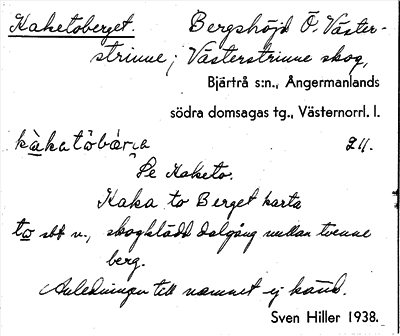 Kaketoberget. Bergshöjd Ö. Väster-
strinne; Västerstrinne skog,
Bjärtrå s:n., Ångermanlands
södra domsagas tg., Västernorrl. l.
kàkatòbárja 24.
Se Kaketo.
Kaka to Berget karta
to sbt n., skogklädd dalgång mellan tvenne
berg.
Anledningen till namnet ej känd.
Sven Hiller 1938.